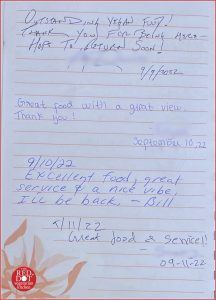 Outstanding Vegan Food!
Thank You For Being Here -
Hope To Return Soon!
9/9/2022
Great food with a great view.
Thank you!
September 10, 22
9/10/22
Excellent food, great
service & a nice vibe.
I'll be back. - Bill
/11/22
Great food & Service!
09-11-22
RED
DOT
vegetarian
kitchen